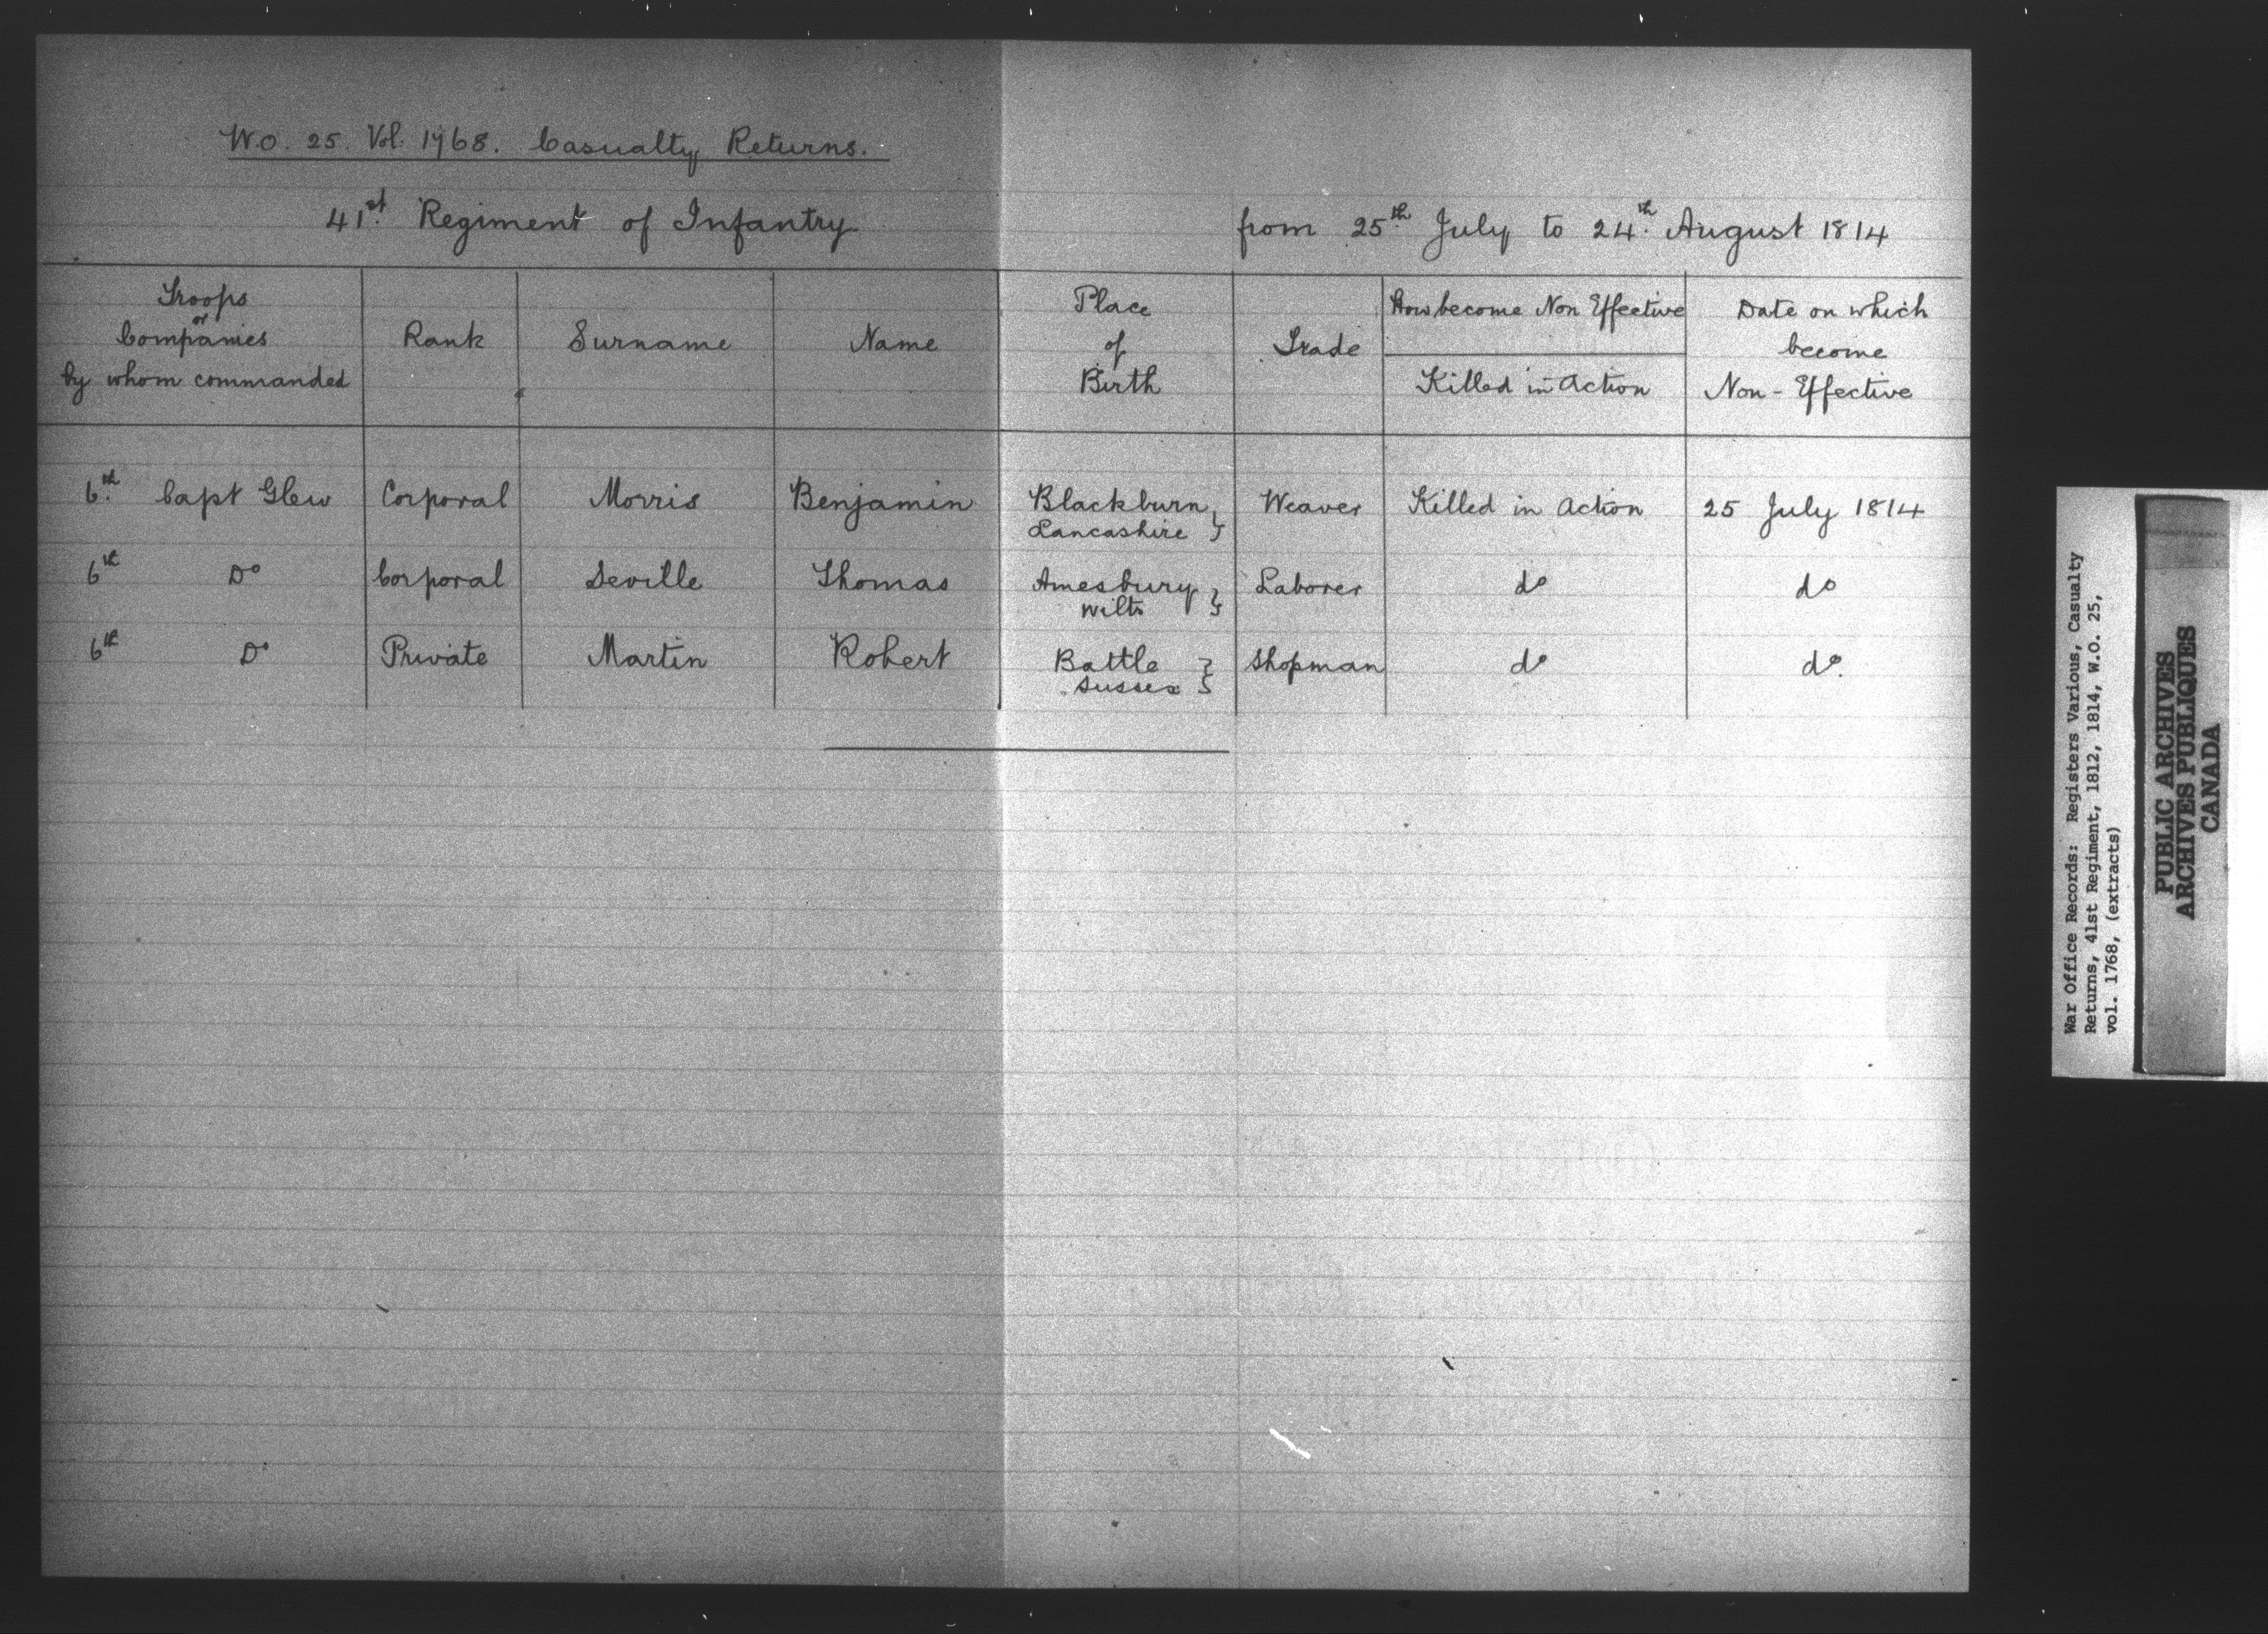 W.O. 25. Vol: 1768. Casualty Returns.
41st. Regiment of Infantry from 25th July to 24th. August 1814
Troops or Companies by whom commanded Rank Surname Name Place of Birth Trade How become Non Effective Killed in Action Date on which become Non-Effective
6th. Capt Glew Corporal Morris Benjamin Blackburn Lancashire } Weaver Killed in Action 25 July 1814
6th Do Corporal Seville Thomas Amesbury Wilts } Laborer do do
6th Do Private Martin Robert Battle Sussex } Shopman do do.
War Office Records: Registers Various, Casualty
Returns, 41st Regiment, 1812, 1814, W.O. 25,
vol. 1768, (extracts)
PUBLIC ARCHIVES
ARCHIVES PUBLIQUES
CANADA